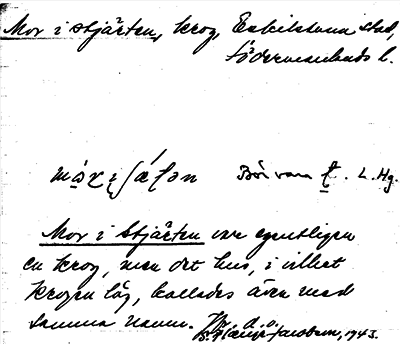 Mor i stjärten, krog, Eskilstuna stad,
Södermanlands l.
Bör vara ţ. L. Hg.
Mor i Stjärten var egentligen
en krog, men det hus, i vilket
krogen låg, kallades även med
samma namn.
Jacobson, 1943.